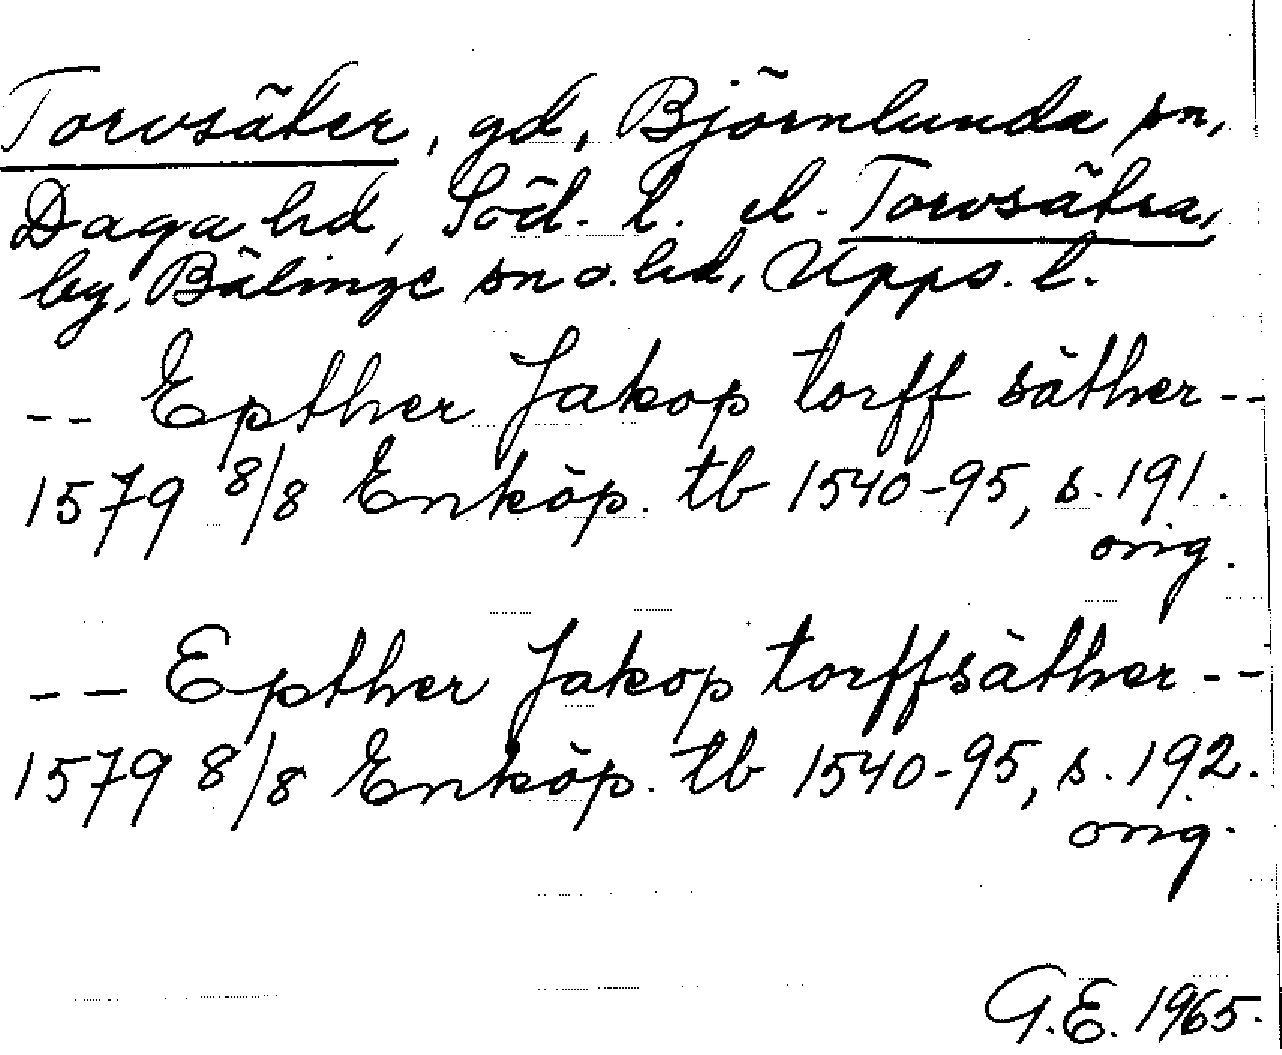 Torvsäter, gd, Björnlunda sn,
Daga hd, Söd. l. el. Torvsätra,
by, Bälinge sn o. hd, Upps. l.
-- Epther Jakop torff säther --
1579 8/8 Enköp. tb 1540-95, s. 191.
orig.
-- Epther Jakop torffsäther --
1579 8/8 Enköp. tb 1540-95, s. 192.
orig.
G.E. 1965.